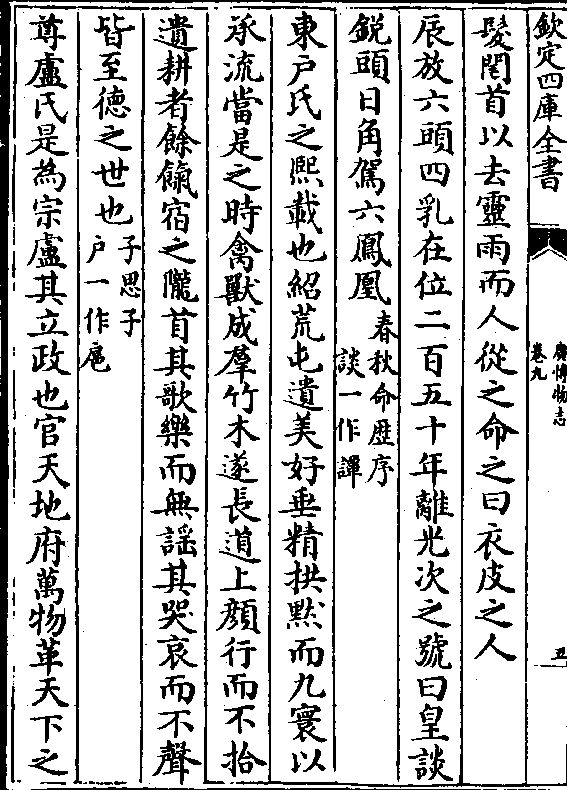 欽定四庫全書
廣博物志
卷九
五
髮閏首以去靈雨而人從之命之曰衣皮之人
辰放六頭四乳在位二百五十年離光次之號曰皇談
鋭頭日角駕六鳳凰春秋命歴序
談一作譚
東户氏之熙載也紹荒屯遺美好垂精拱黙而九寰以
承流當是之時禽獸成羣竹木遂長道上顔行而不拾
遺耕者餘餼宿之隴首其歌樂而無謡其哭哀而不聲
皆至德之世也子思子
户一作扈
尊盧氏是為宗盧其立政也官天地府萬物革天下之